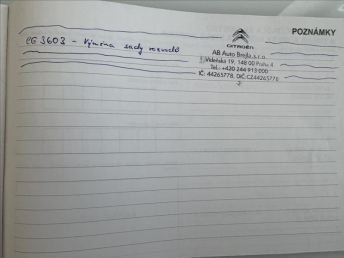 POZNÁMKY
CITROËN
PG 3603 - Výměna sady rozvodů
AB Auto Brejla, s.r.o.
Vídeňská 19, 148 00 Praha 4
Tel.: +420 244 913 000
IČ: 44265778, DIČ: CZ44265778